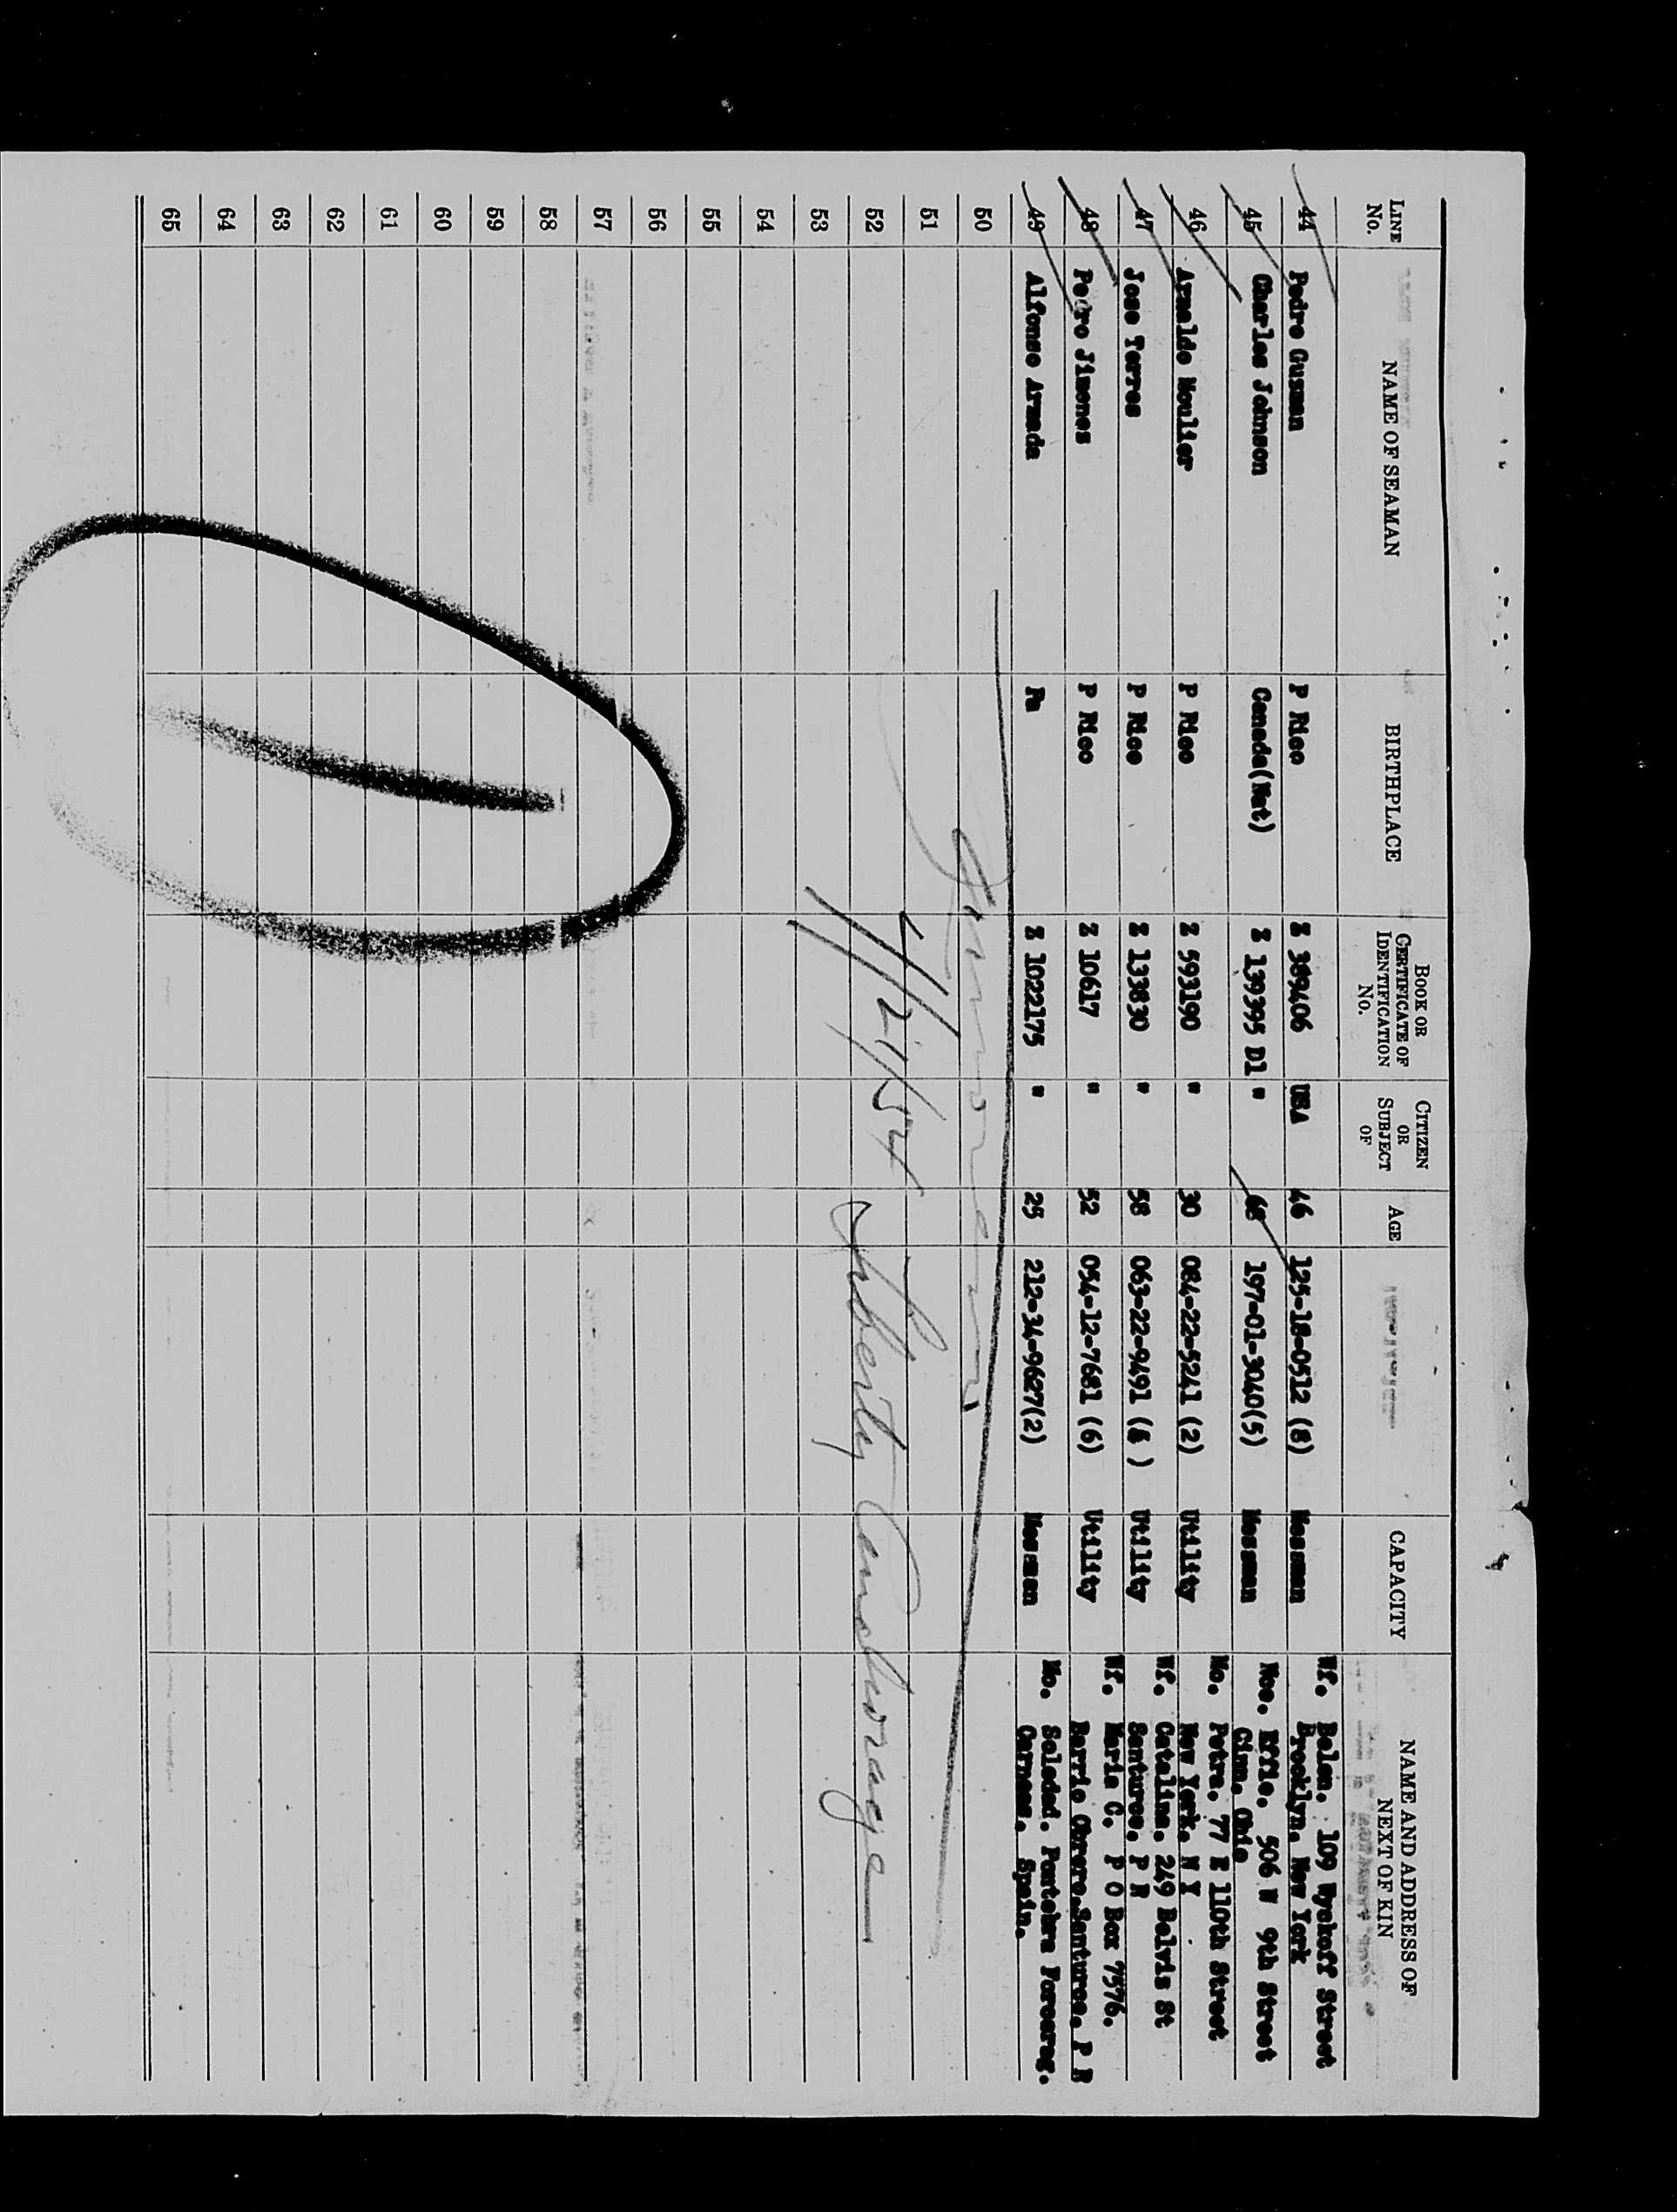 LINE NO. NAME OF SEAMAN BIRTHPLACE BOOK OR CERTIFICATE OF IDENTIFICATION No. CITIZEN OR SUBJECT OF AGE CAPACITY NAME AND ADDRESS OF NEXT OF KIN
44 Pedro Guzman P Rico Z 389406 USA 46 125-18-0512 (8) Messman Wf. Belen. 109 Wyckoff Street
Brooklyn. New York
45 Charles Johnson Canada(Nat) Z 139395 D1 " 197-01-3040(5) Messman Nce. Effie. 506 W 9th Street
Cinn. Ohio
46 Arnaldo Moulier P Rico Z 593190 " 30 084-22-5241 (2) Utility Mo. Petra. 77 E 110th Street
New York. N Y
47 Jose Torres P Rico Z 133830 " 58 063-22-9491 ( ) Utility Wf. Catalina. 249 Belvis St
Santurce. P R
48 Pedro Jimenes P Rico Z 10617 " 52 054-12-7681 (6) Utility Wf. Maria C. P O Box 7576.
Barrio Obrero.Santurce. P R
49 Alfonso Armada Pa Z 1022175 " 25 212-34-9627(2) Messman Mo. Soledad.
Spain.
50
51
52 4/21/54 Liberty Anchorage
53
54
55
56
57
58
59
60
61
62
63
64
65